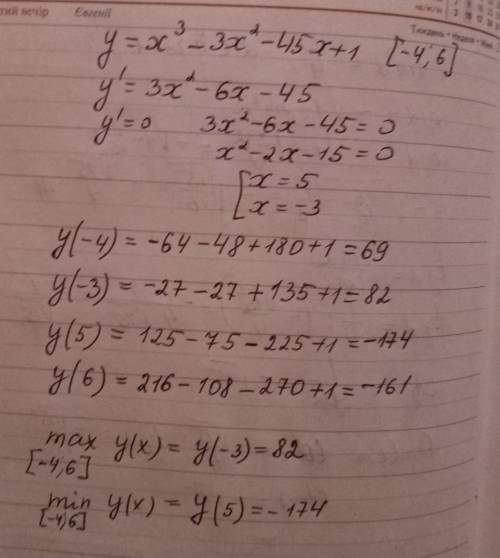 гий вечір Євгенії
Тиждень • Неделя •
y = x³ - 3x² - 45x + 1 [-4; 6]
y' = 3x² - 6x - 45
y' = 0 3x² - 6x - 45 = 0
x² - 2x - 15 = 0
[x = 5
x = -3
y(-4) = -64 - 48 + 180 + 1 = 69
y(-3) = -27 - 27 + 135 + 1 = 82
y(5) = 125 - 75 - 225 + 1 = -174
y(6) = 216 - 108 - 270 + 1 = -161
max y(x) = y(-3) = 82
[-4; 6]
min y(x) = y(5) = -174
[-4; 6]